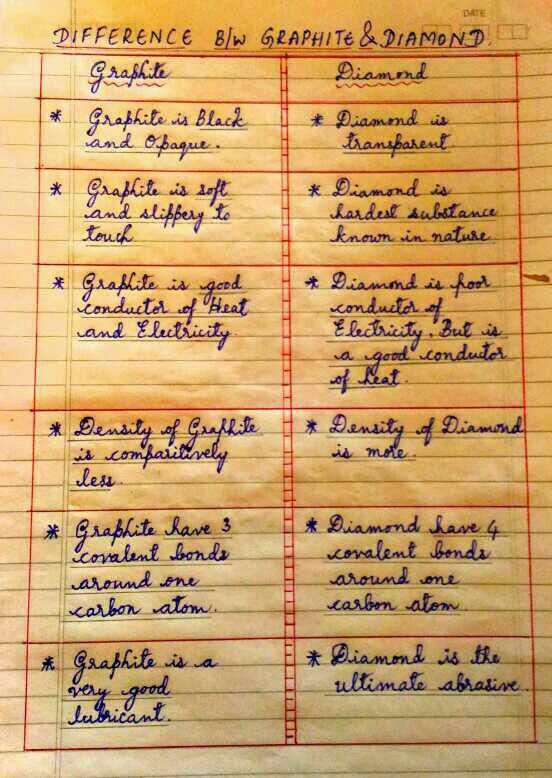 DATE
DIFFERENCE B/W GRAPHITE & DIAMOND.
Graphite
Diamond
* Graphite is Black
and Opaque.
* Diamond is
transparent.
* Graphite is soft
and slippery to
touch
* Diamond is
hardest substance
known in nature
* Graphite is good
conductor of Heat
and Electricity
* Diamond is poor
conductor of
Electricity. But is
a good conductor
of heat.
* Density of Graphite
is comparitively
less.
* Density of Diamond
is more.
* Graphite have 3
covalent bonds
around one
carbon atom.
* Diamond have 4
covalent bonds
around one
carbon atom.
* Graphite is a
very good
lubricant.
* Diamond is the
ultimate abrasive.